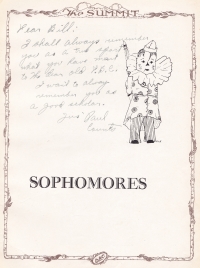 The SUMMIT
Dear Bill:
I shall always remember
you as a true sport
what you have meant
to the dear old
I want to always
remember you as
a good scholar.
Paul
SOPHOMORES